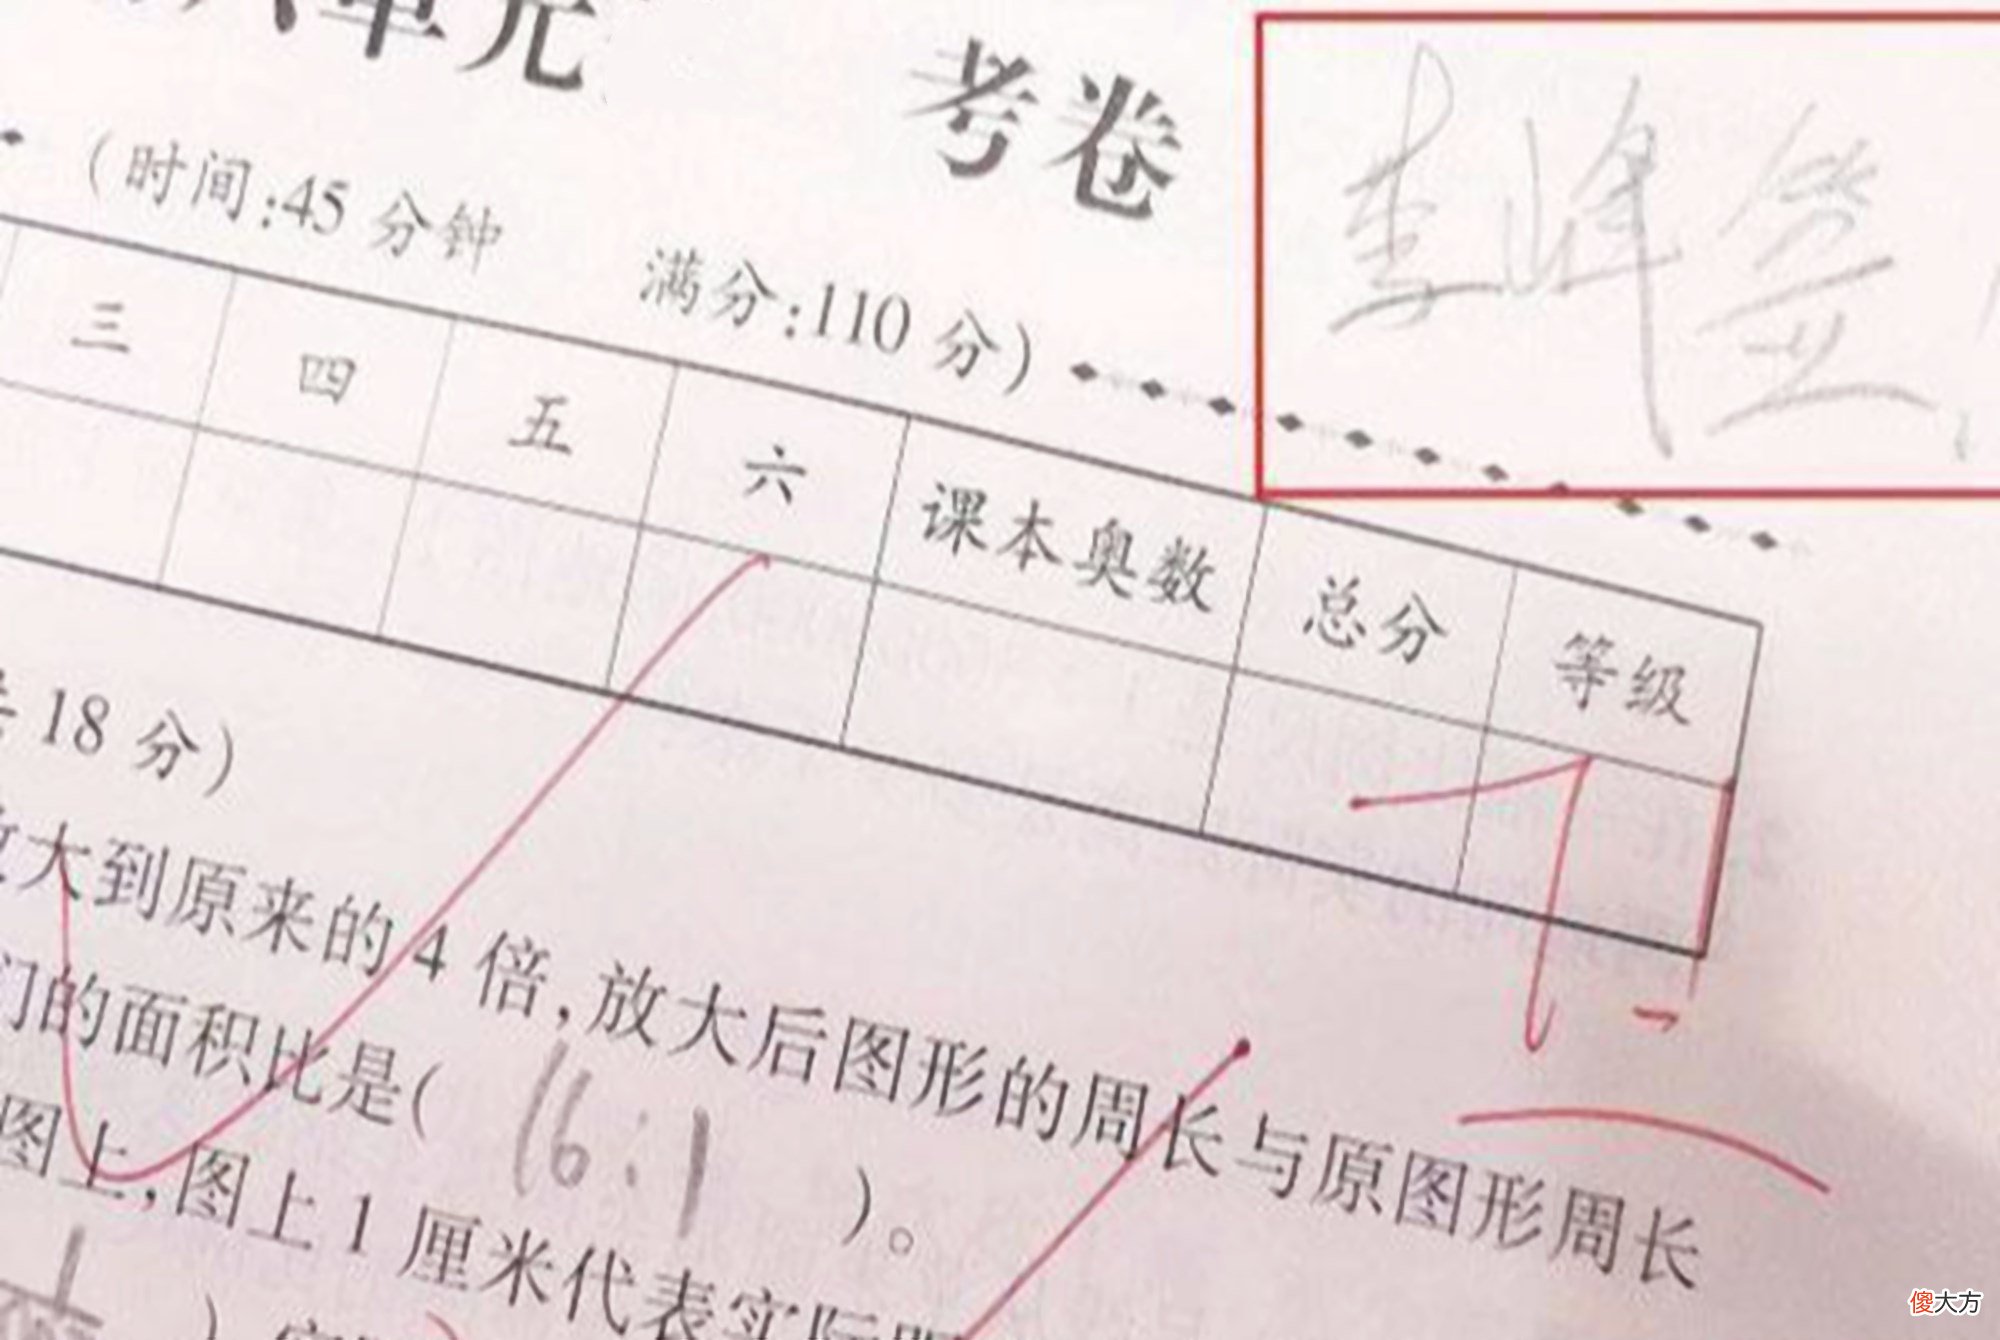 单元 考卷
(时间:45分钟 满分:110分)
三 四 五 六 课本奥数 总分 等级
18分)
大到原来的4倍,放大后图形的周长与原图形周长
们的面积比是( 16:1 )。
图上,图上1厘米代表实际
1
傻大方